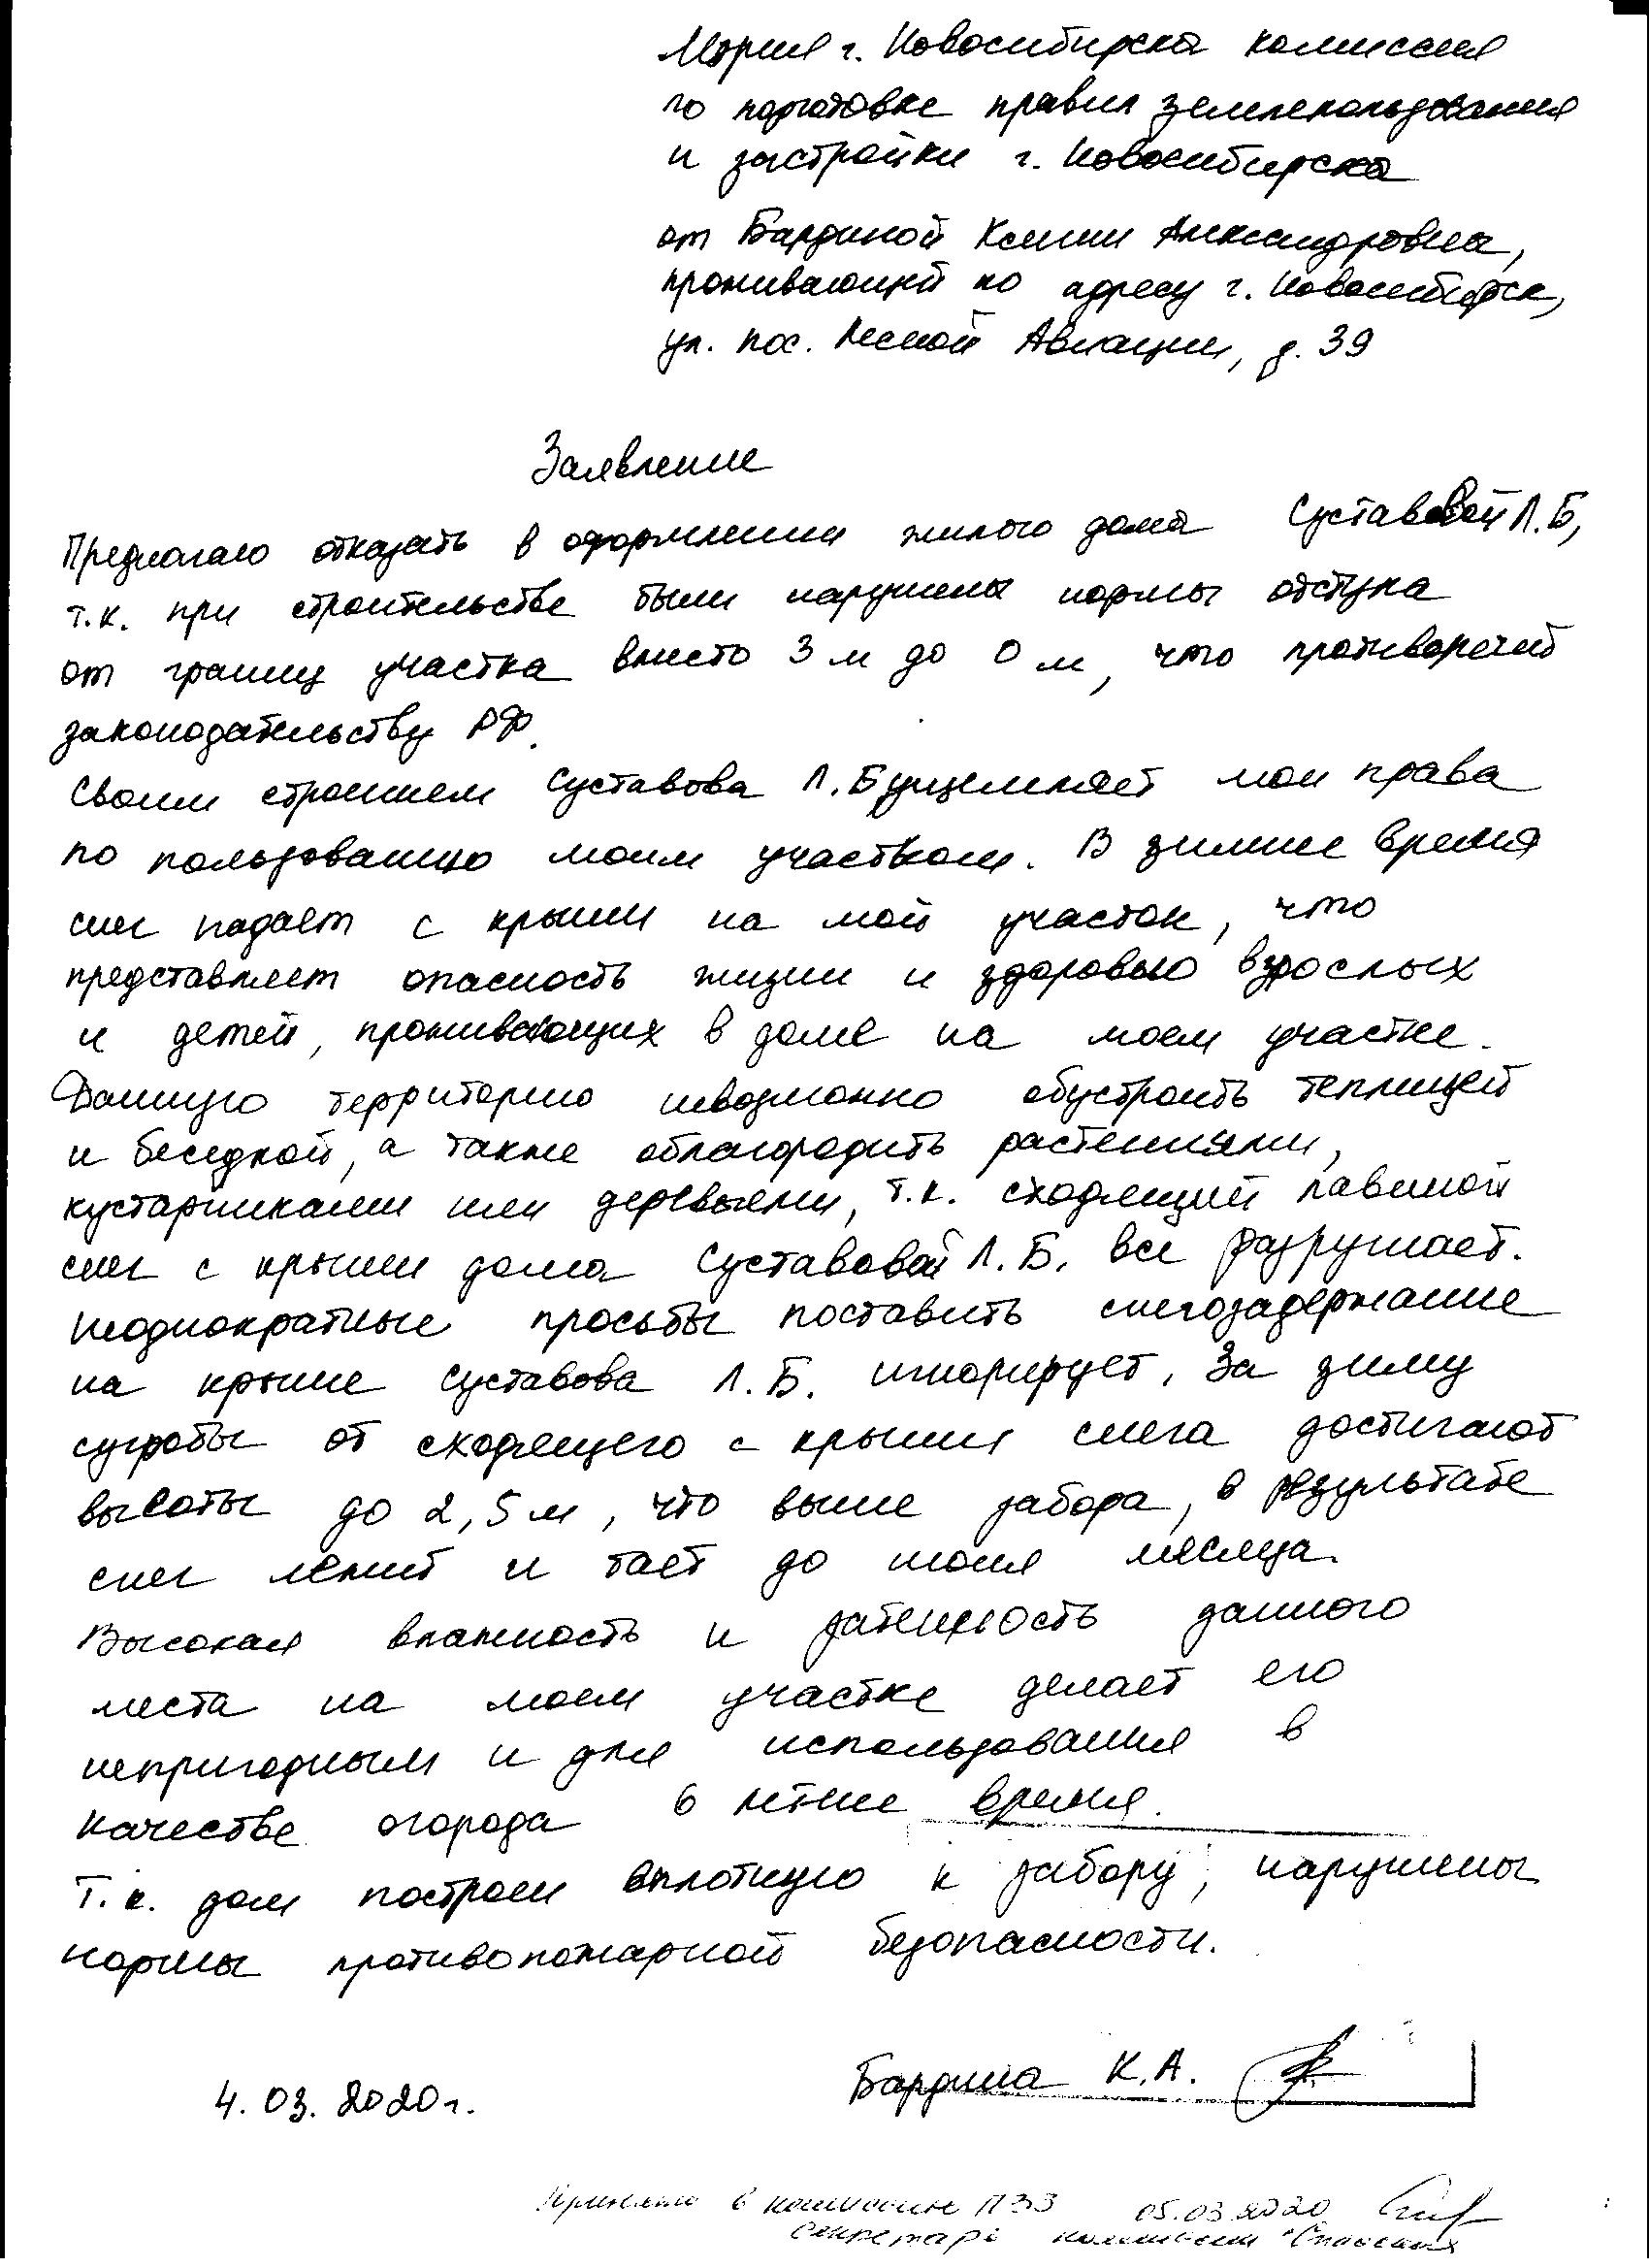 Мэрия г. Новосибирска комиссия
по подготовке правил землепользования
и застройки г. Новосибирска
от Бардиной Ксении Александровна,
проживающей по адресу г. Новосибирск,
ул. пос. Лесной Авиации, д. 39
Заявление
Предлагаю отказать в оформлении жилого дома Суставовой Л.Б,
т.к. при строительстве были нарушены нормы отступа
от границ участка вместо 3 м до 0 м, что противоречит
законодательству РФ.
Своим строением Суставова Л.Б ущемляет мои права
по пользованию моим участком. В зимнее время
снег падает с крыши на мой участок, что
представляет опасность жизни и здоровью взрослых
и детей, проживающих в доме на моем участке.
Данную территорию невозможно обустроить теплицей
и беседкой, а также облагородить растениями,
кустарниками или деревьями, т.к. сходящий лавиной
снег с крыши дома Суставовой Л.Б. все разрушает.
Неоднократные просьбы поставить снегозадержание
на крыше Суставова Л.Б. игнорирует. За зиму
сугробы от сходящего с крыши снега достигают
высоты до 2,5 м, что выше забора, в результате
снег лежит и тает до июня месяца.
Высокая влажность и затененность данного
места на моем участке делает его
непригодным и для использования в
качестве огорода в летнее время.
Т.к. дом построен вплотную к забору, нарушены
нормы противопожарной безопасности.
Бардина К.А.
4.03.2020г.
Принято в комиссию ПЗЗ 05.03.2020
Секретарь комиссии